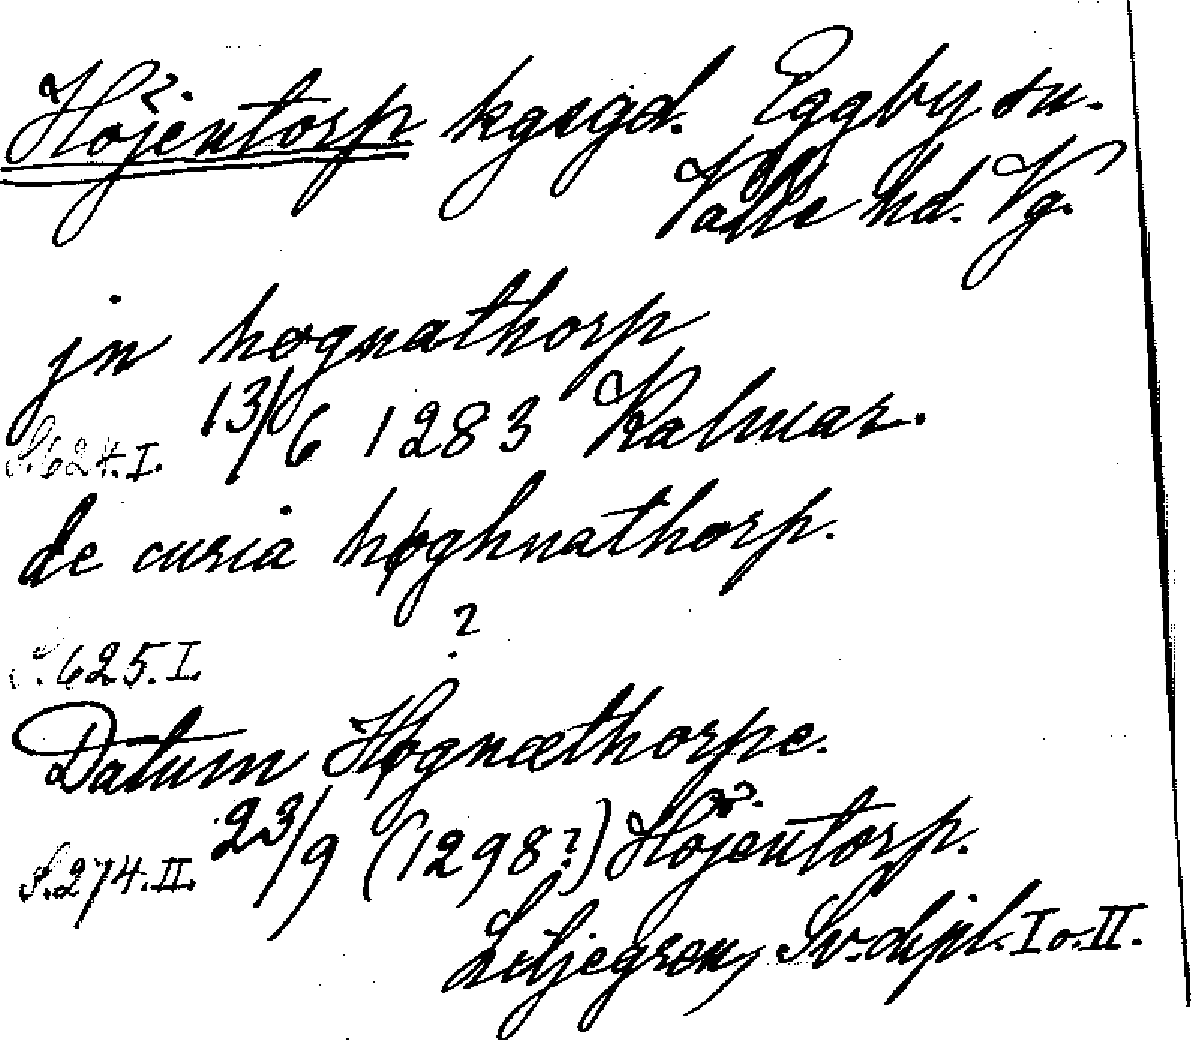 Höjentorp kgsgd. Eggby sn.
Valle hd. Vg.
jn høgnathorp
13/6 1283 Kalmar.
S. 624. I.
de curia høghnathorp.
?
S. 625. I.
Datum Høgnæthorpe.
23/9 (1298?) Höjentorp.
S. 274. II.
Liljegren, Sv. dipl. I o. II.